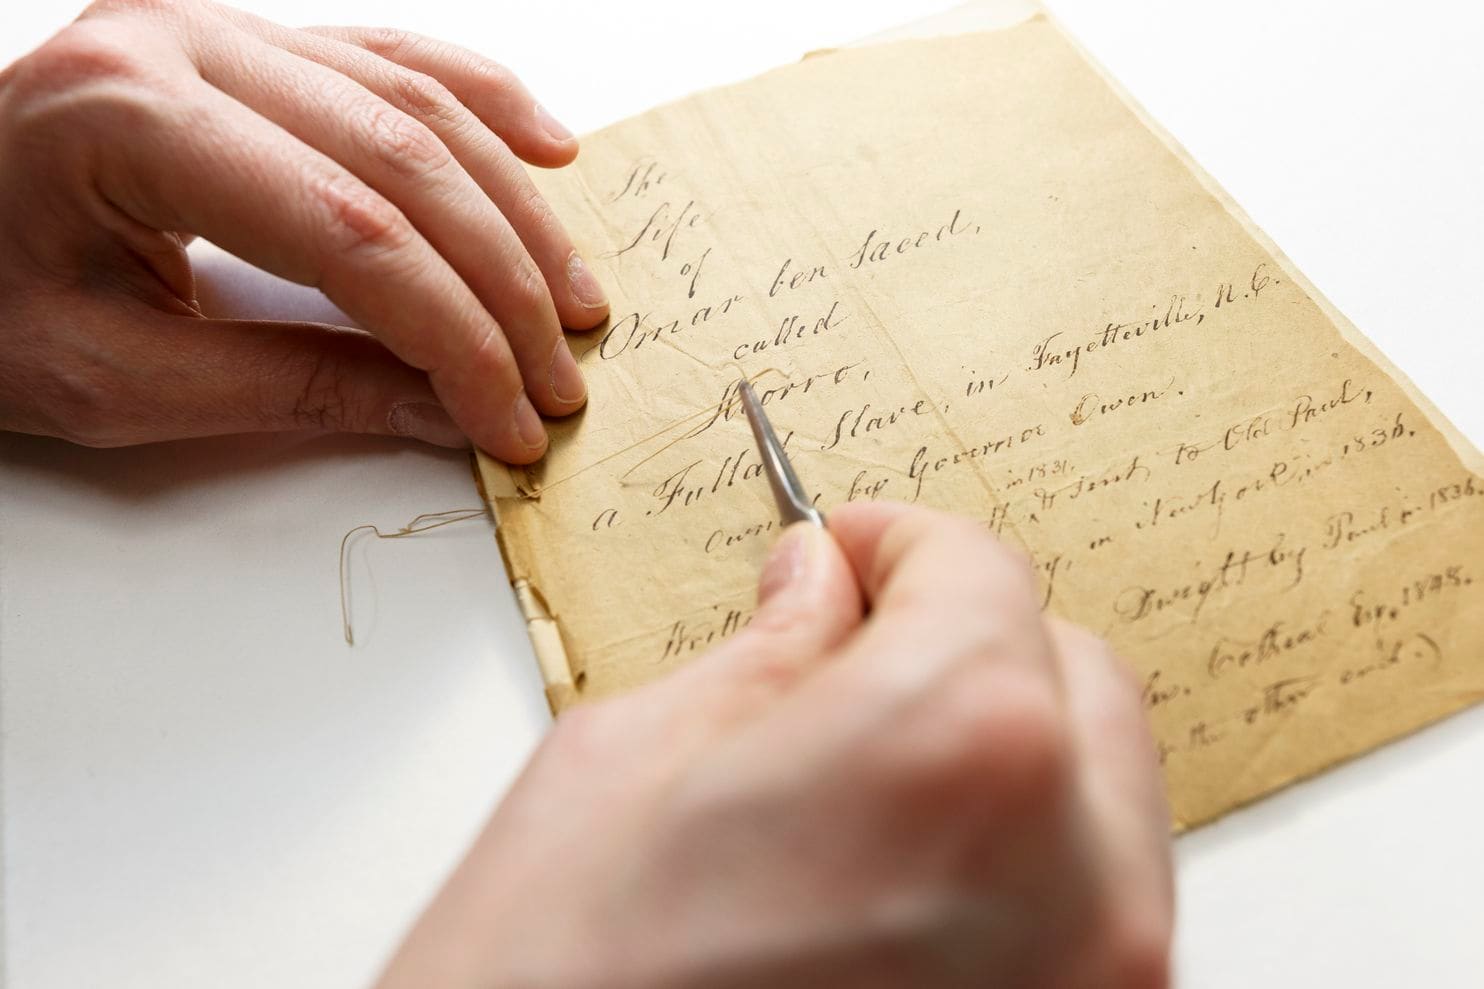 The
Life
of
Omar ben Saeed,
called
Morro,
a Fullah Slave, in Fayetteville, N.C.
Owned by Governor Owen.
Written in 1831. & sent to Old Paul,
in New York, in 1836.
Dwight by Paul in 1836.
Cotheal Esq. 1848.
the other end.)